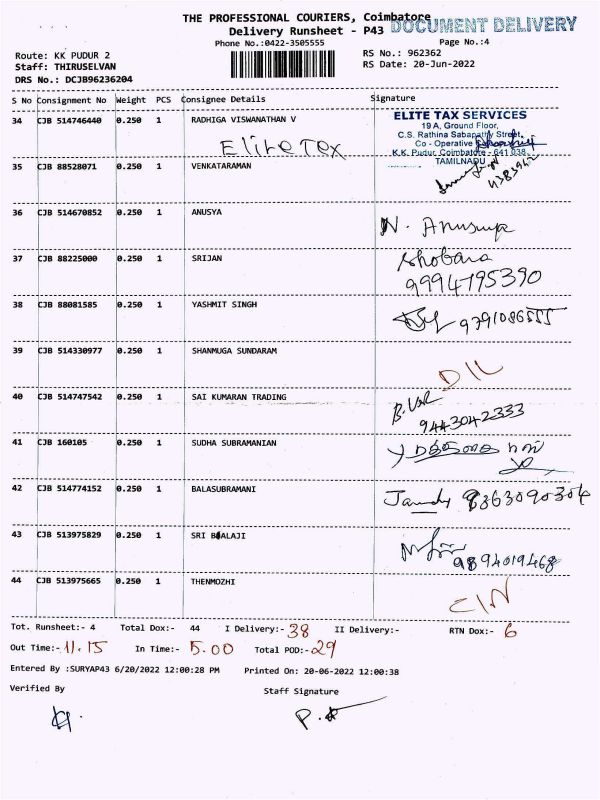 THE PROFESSIONAL COURIERS, Coimbatore
DOCUMENT DELIVERY
Delivery Runsheet - P43
Phone No.:0422-3505555
Page No.:4
Route: KK PUDUR 2
RS No.: 962362
Staff: THIRUSELVAN
RS Date: 20-Jun-2022
DRS No.: DCJB96236204
S No Consignment No Weight PCS Consignee Details Signature
34 CJB 514746440 0.250 1 RADHIGA VISWANATHAN V
Elite Tax
ELITE TAX SERVICES
19 A, Ground Floor,
C.S. Rathina Sabapathy Street,
Co - Operative
K.K. Pudur, Coimbatore - 641 038,
TAMILNADU
35 CJB 88528071 0.250 1 VENKATARAMAN
36 CJB 514670852 0.250 1 ANUSYA
N. Anusuya
37 CJB 88225000 0.250 1 SRIJAN
Shobana
9994795390
38 CJB 88081585 0.250 1 YASHMIT SINGH
9791086555
39 CJB 514330977 0.250 1 SHANMUGA SUNDARAM
DIL
40 CJB 514747542 0.250 1 SAI KUMARAN TRADING
9443042333
41 CJB 160105 0.250 1 SUDHA SUBRAMANIAN
42 CJB 514774152 0.250 1 BALASUBRAMANI
43 CJB 513975829 0.250 1 SRI BALAJI
9894019468
44 CJB 513975665 0.250 1 THENMOZHI
CIN
Tot. Runsheet:- 4 Total Dox:- 44 I Delivery:- 38 II Delivery:- RTN Dox:- 6
Out Time:- 11.15 In Time:- 5.00 Total POD:- 29
Entered By :SURYAP43 6/20/2022 12:00:28 PM Printed On: 20-06-2022 12:00:38
Verified By Staff Signature